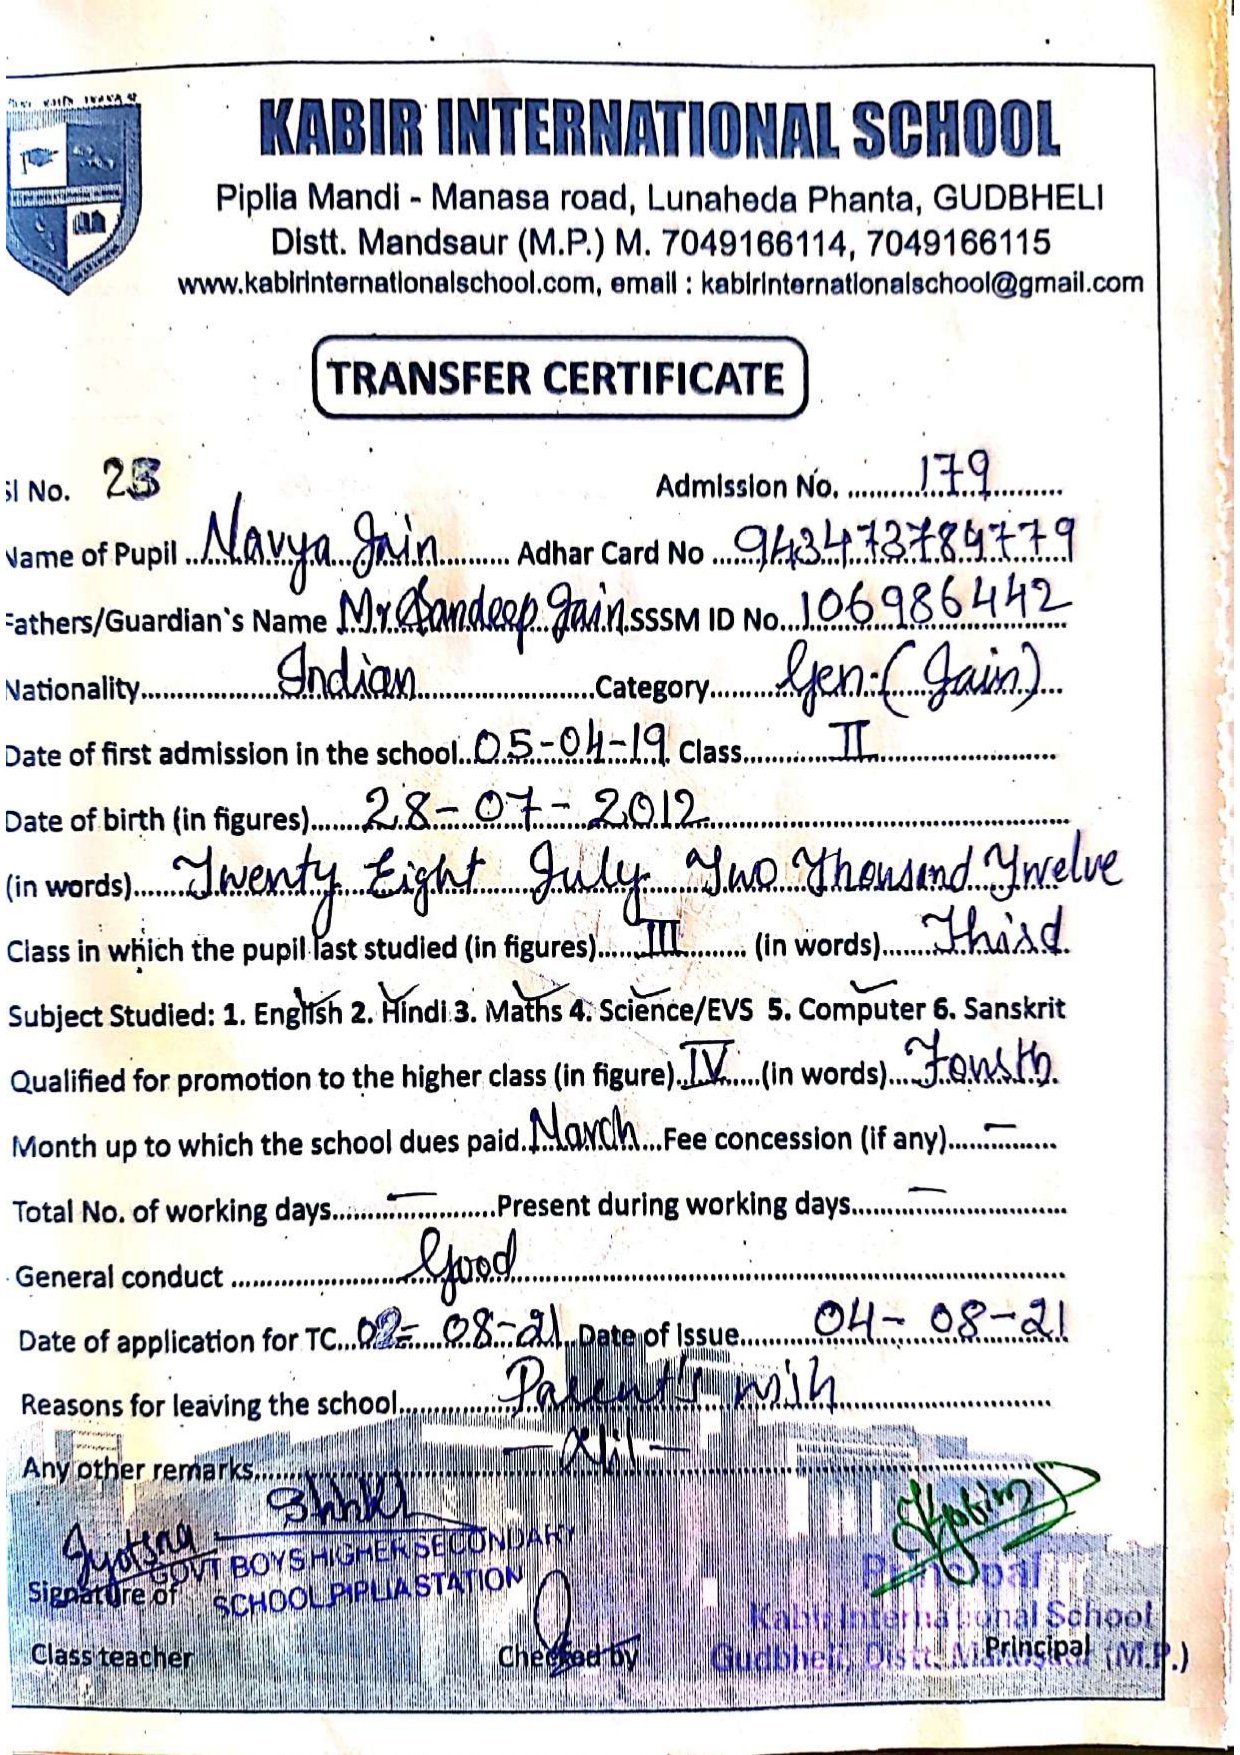 KABIR INTERNATIONAL SCHOOL
Piplia Mandi - Manasa road, Lunaheda Phanta, GUDBHELI
Distt. Mandsaur (M.P.) M. 7049166114, 7049166115
www.kabirinternationalschool.com, email : kabirinternationalschool@gmail.com
TRANSFER CERTIFICATE
Sl No. 23 Admission No. 179
Name of Pupil Navya Jain Adhar Card No 943473784779
Fathers/Guardian's Name Mr Sandeep Jain SSSM ID No. 106986442
Nationality Indian Category Gen.(Jain)
Date of first admission in the school 05-04-19 Class II
Date of birth (in figures) 28-07-2012
(in words) Twenty Eight July Two Thousand Twelve
Class in which the pupil last studied (in figures) III (in words) Third
Subject Studied: 1. English 2. Hindi 3. Maths 4. Science/EVS 5. Computer 6. Sanskrit
Qualified for promotion to the higher class (in figure) IV (in words) Fourth
Month up to which the school dues paid. March Fee concession (if any) —
Total No. of working days — Present during working days —
General conduct Good
Date of application for TC 02-08-21 Date of issue 04-08-21
Reasons for leaving the school Parent's wish
Any other remarks — Nil —
Jyotsna
GOVT BOYS HIGHER SECONDARY
SCHOOL PIPLIA STATION
Signature of
Class teacher
Checked by
Principal
Principal
Kabir International School
Gudbheli, Distt. Mandsaur (M.P.)